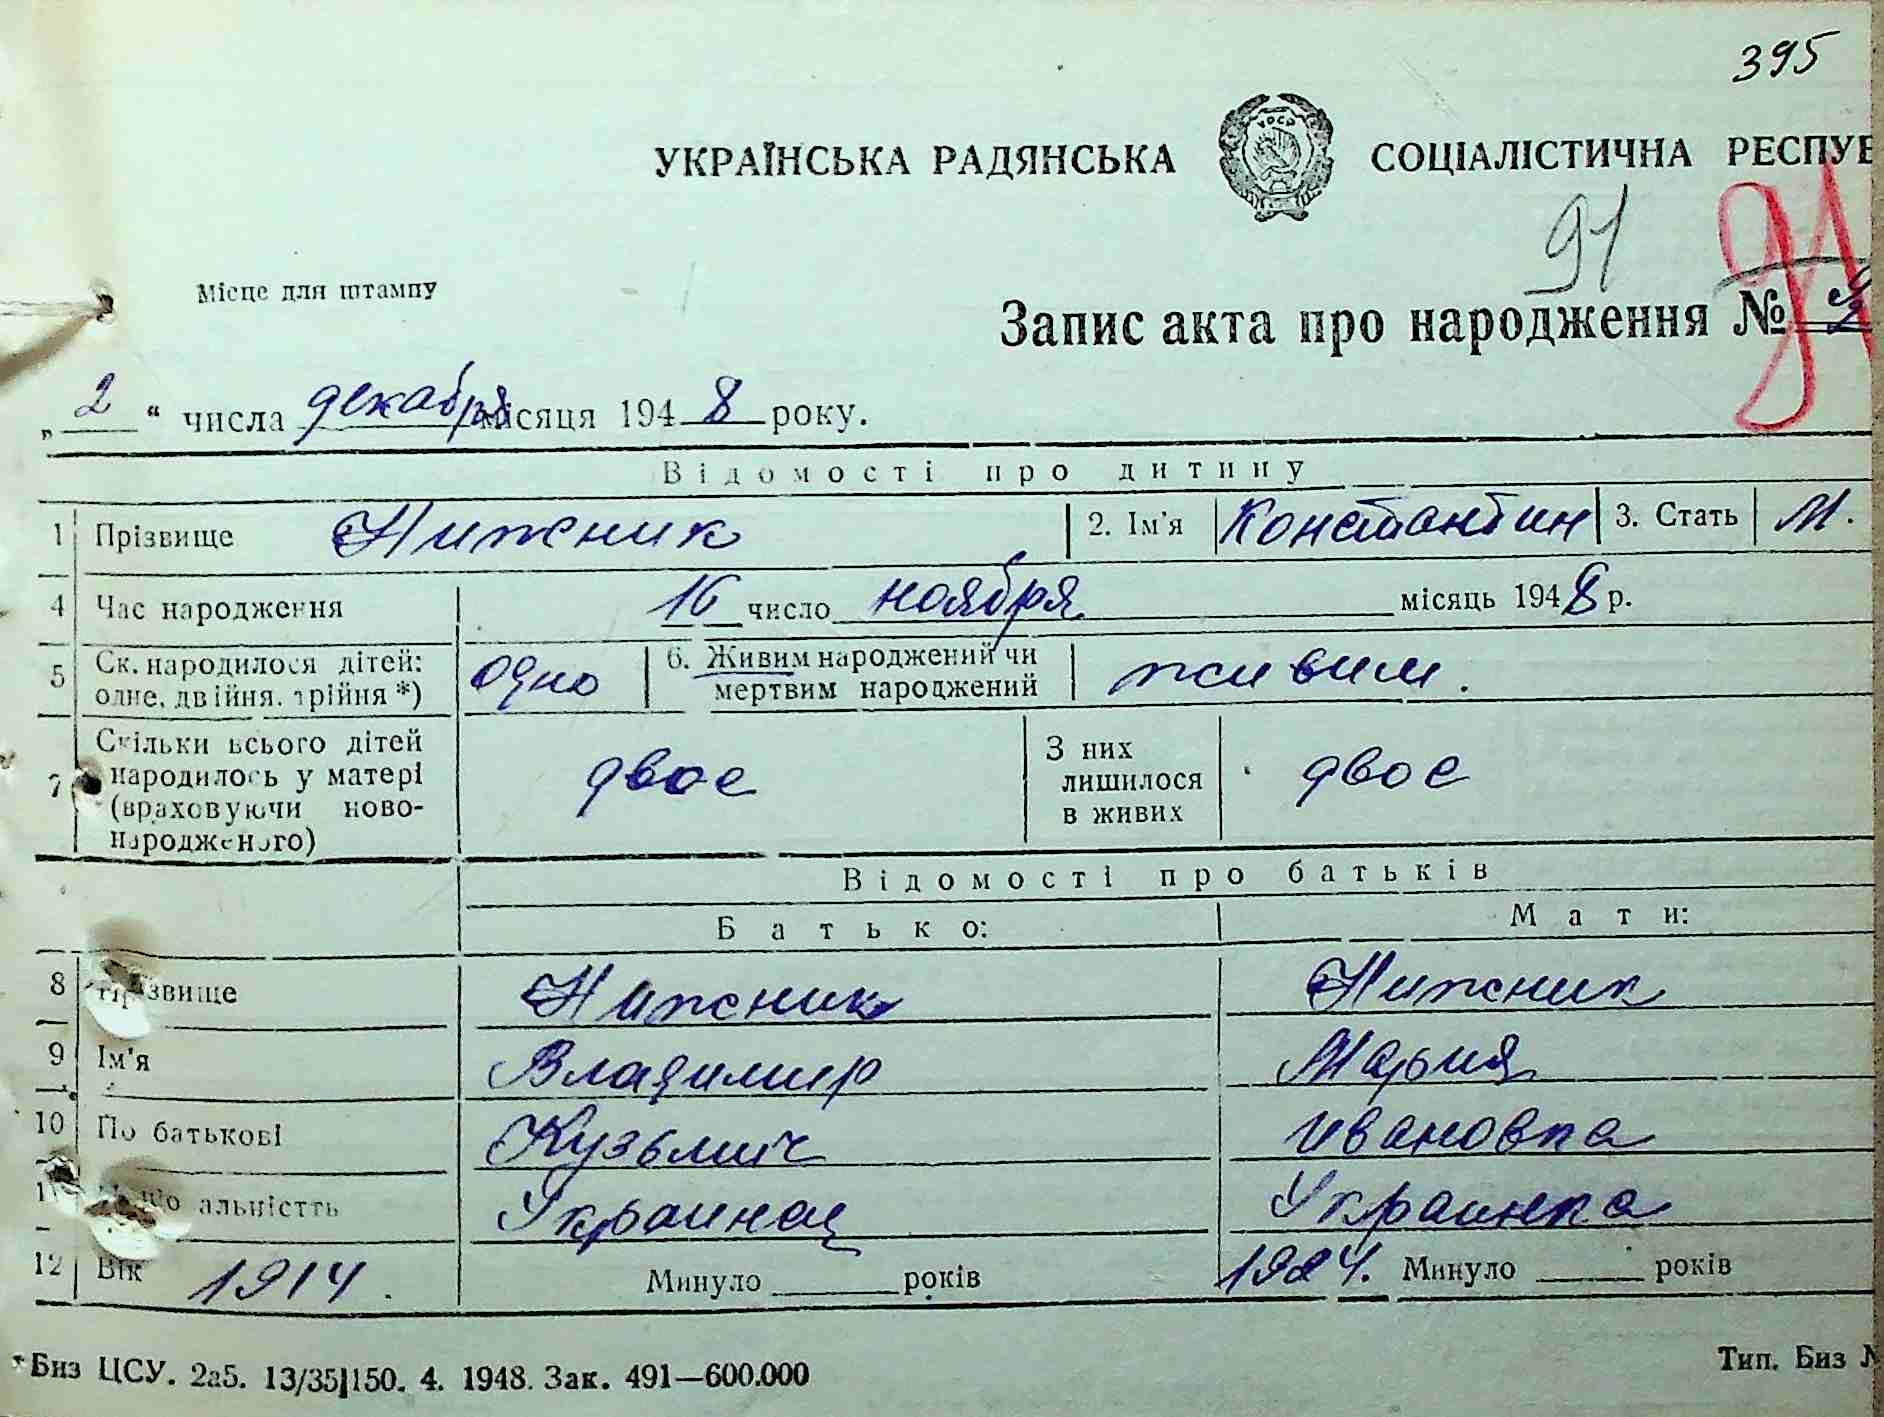 395
УКРАЇНСЬКА РАДЯНСЬКА УРСР СОЦІАЛІСТИЧНА РЕСПУБ
91 91
Місце для штампу
Запис акта про народження №
„ 2 “ числа декабря місяця 1948 року.
Відомості про дитину
1 Прізвище Нижник 2. Ім'я Константин 3. Стать М.
4 Час народження 16 число ноября місяць 1948 р.
5 Ск. народилося дітей: одне, двійня, трійня *) одно 6. Живим народжений чи мертвим народжений живим.
7 Скільки всього дітей народилось у матері (враховуючи новонародженого) двое З них лишилося в живих двое
Відомості про батьків
Батько: Мати:
8 Прізвище Нижник Нижник
9 Ім'я Владимир Мария
10 По батькові Кузьмич Ивановна
11 Національністть Украинец Украинка
12 Вік 1914. Минуло ___ років 1924. Минуло ___ років
*Биз ЦСУ. 2а5. 13/35|150. 4. 1948. Зак. 491—600.000 Тип. Биз №